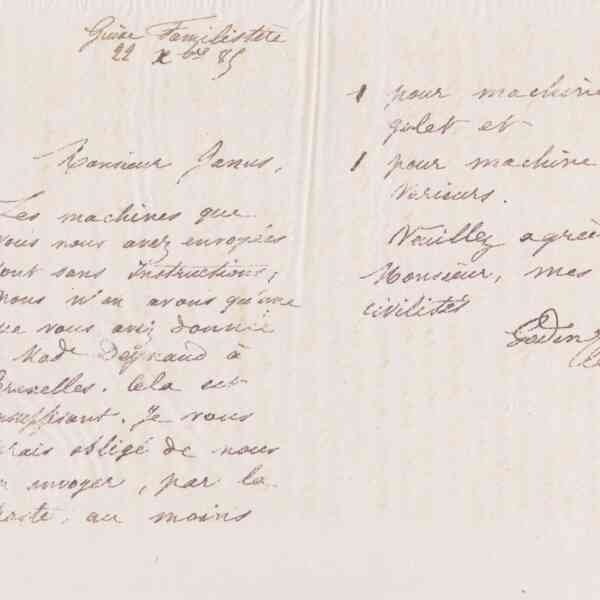 Guise Familistère
22 Xbre 85
Monsieur Janus,
Les machines que
vous nous avez envoyées
sont sans instructions,
nous n'en avons qu'une
que vous avez donnée
à Made Deynaud à
Bruxelles. Cela est
insuffisant. Je vous
serais obligé de nous
en envoyer, par la
Poste, au moins
1 pour machine
galet et
1 pour machine
Verieurs.
Veuillez agré
Monsieur, mes
civilités
Godin